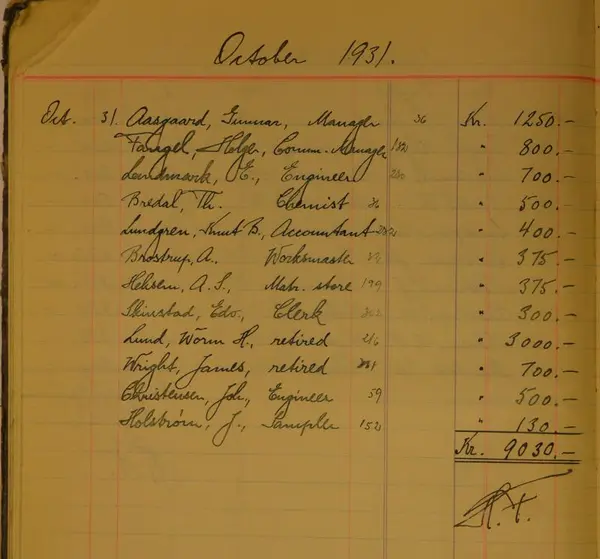 October 1931.
Oct. 31. Aasgaard, Gunnar, Manager 36 Kr. 1250.-
Fangel, Holger, Comm. Manager " 800.-
Landmark, E., Engineer " 700.-
Bredal, Th. Chemist 36 " 500.-
Lundgren, Knut B., Accountant " 400.-
Brostrup, A. Worksmaster " 375.-
A. S., Matr. store 199 " 375.-
Skinstad, Edv., Clerk " 300.-
Lund, Worm H., retired 216 " 3000.-
Wright, James, retired " 700.-
Christensen, Joh., Engineer 59 " 500.-
Holstrøm, J., Sampler 152 " 130.-
Kr. 9030.-